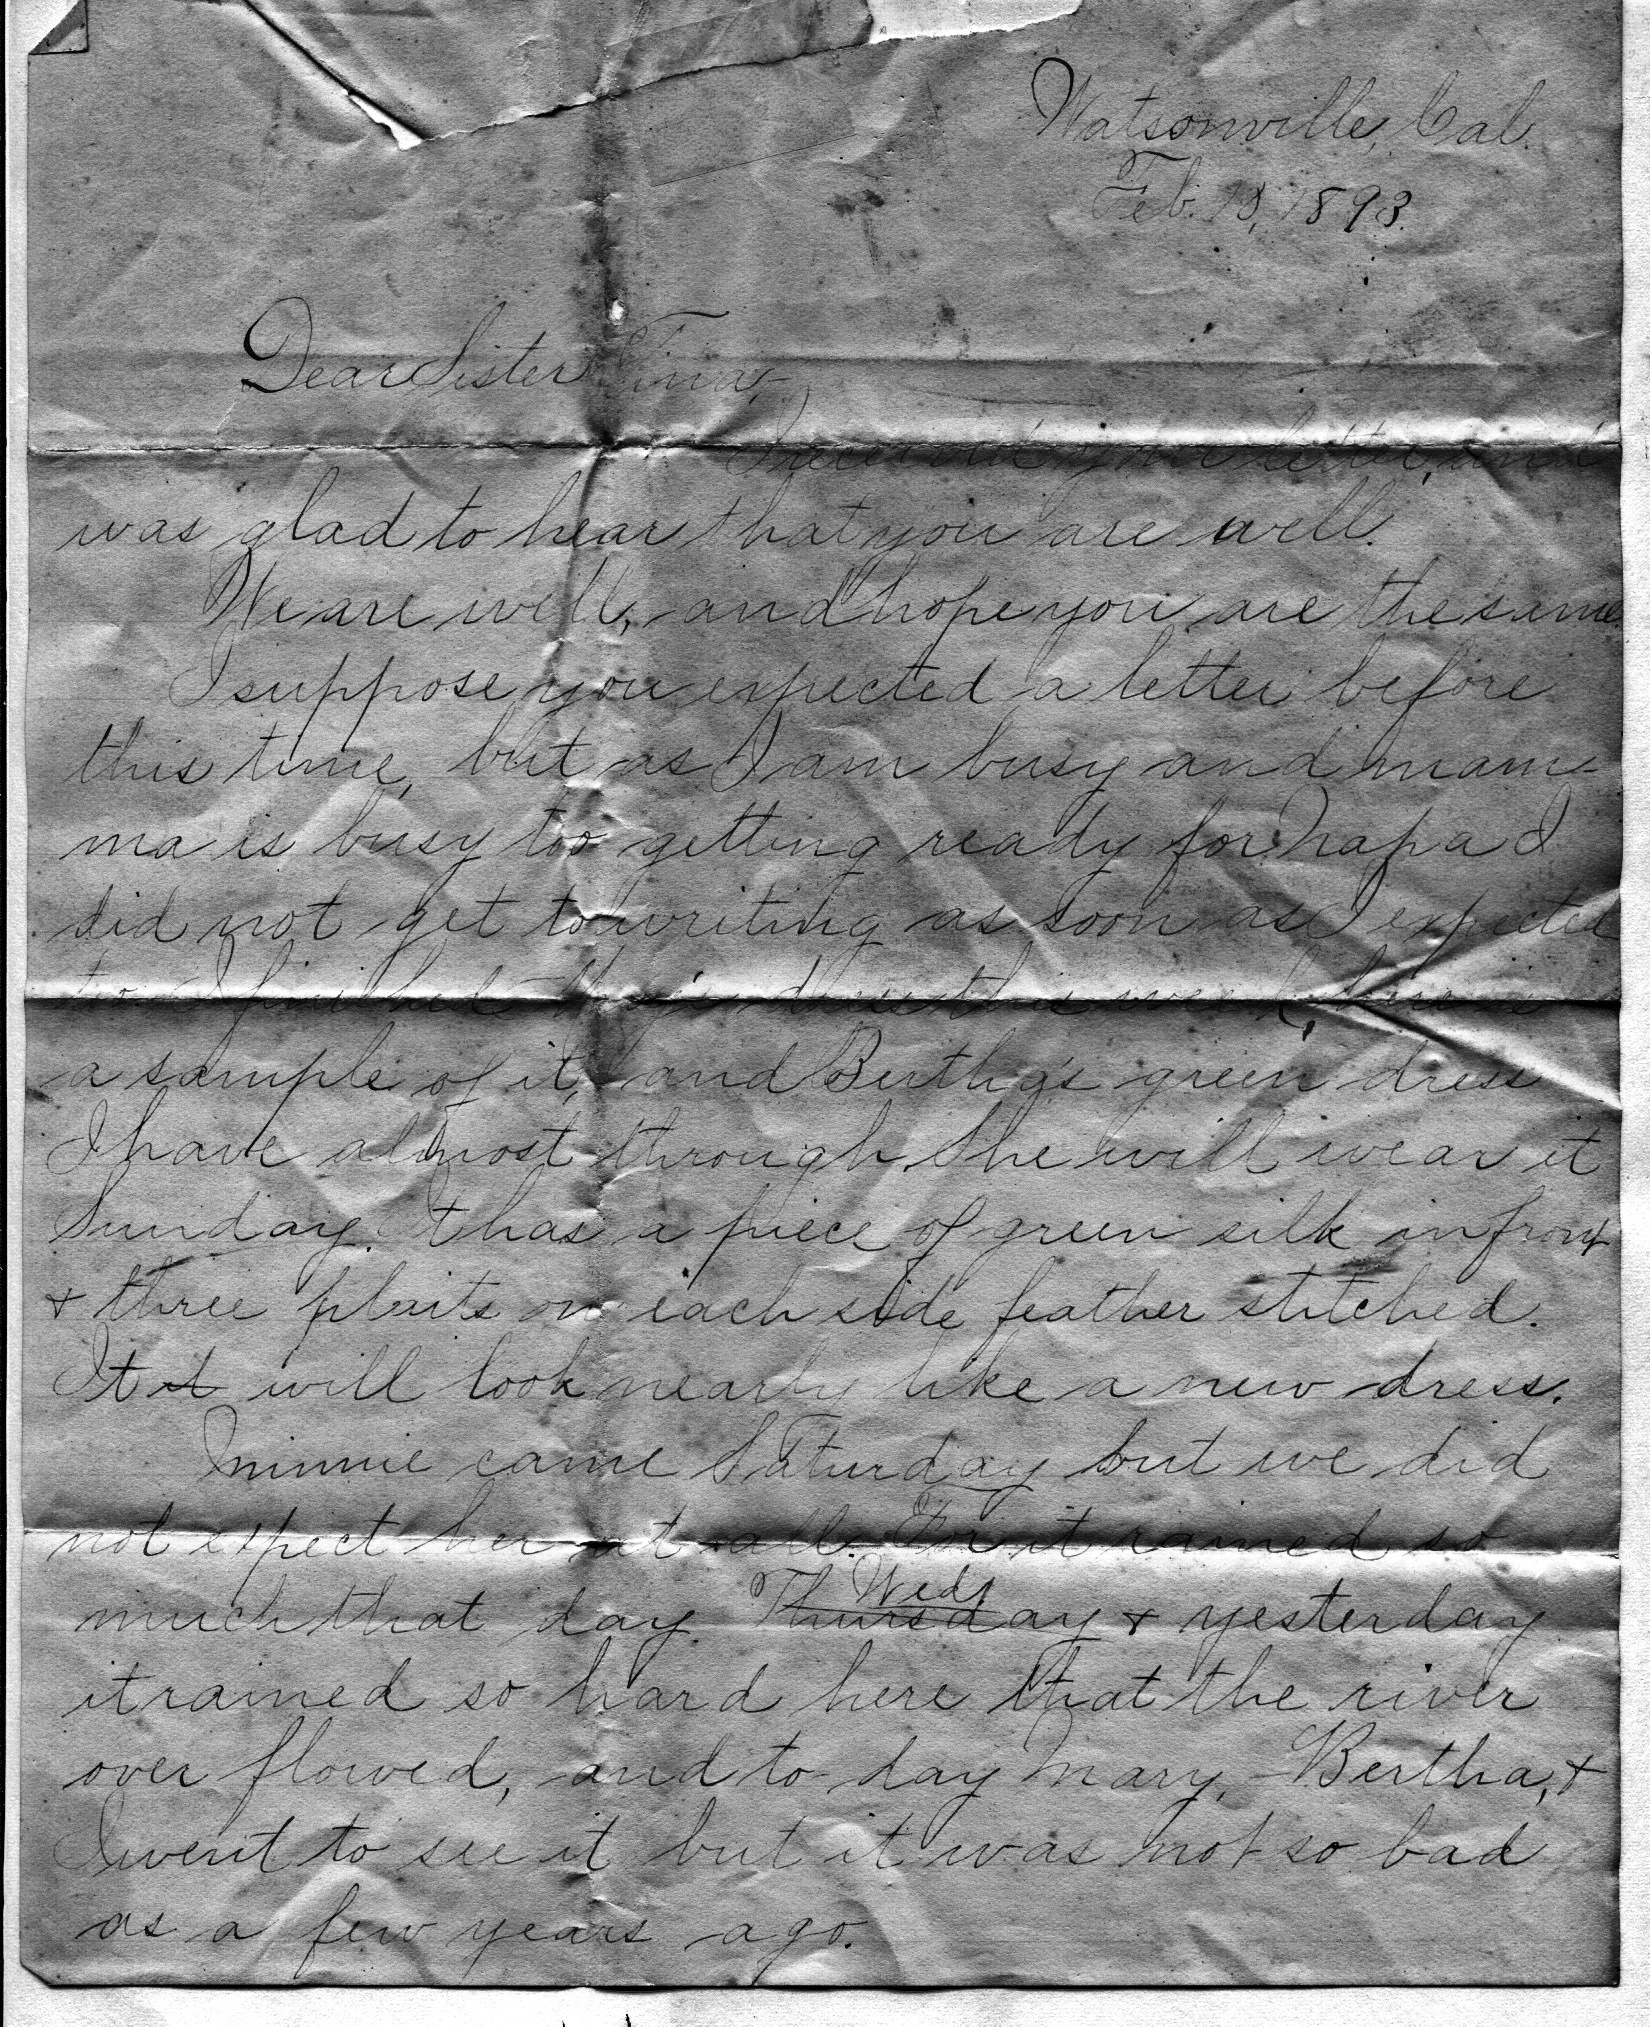 Watsonville, Cal.
Feb. 13, 1893.
Dear Sister Tina,-
I received your letter, and
was glad to hear that you are well.
We are well, and hope you are the same.
I suppose you expected a letter before
this time, but as I am busy and mam-
ma is busy too getting ready for Napa I
did not get to writing as soon as I expected
to. I finished dress this week, here is
a sample of it, and Bertha's green dress
I have almost through. She will wear it
Sunday. It has a piece of green silk in front
& three plaits on each side feather stitched.
It will look nearly like a new dress.
Minnie came Saturday but we did
not expect her at all. For it rained so
much that day. Thursday Wed. & yesterday
it rained so hard here that the river
over flowed, and to-day Mary, Bertha, &
I went to see it but it was not so bad
as a few years ago.